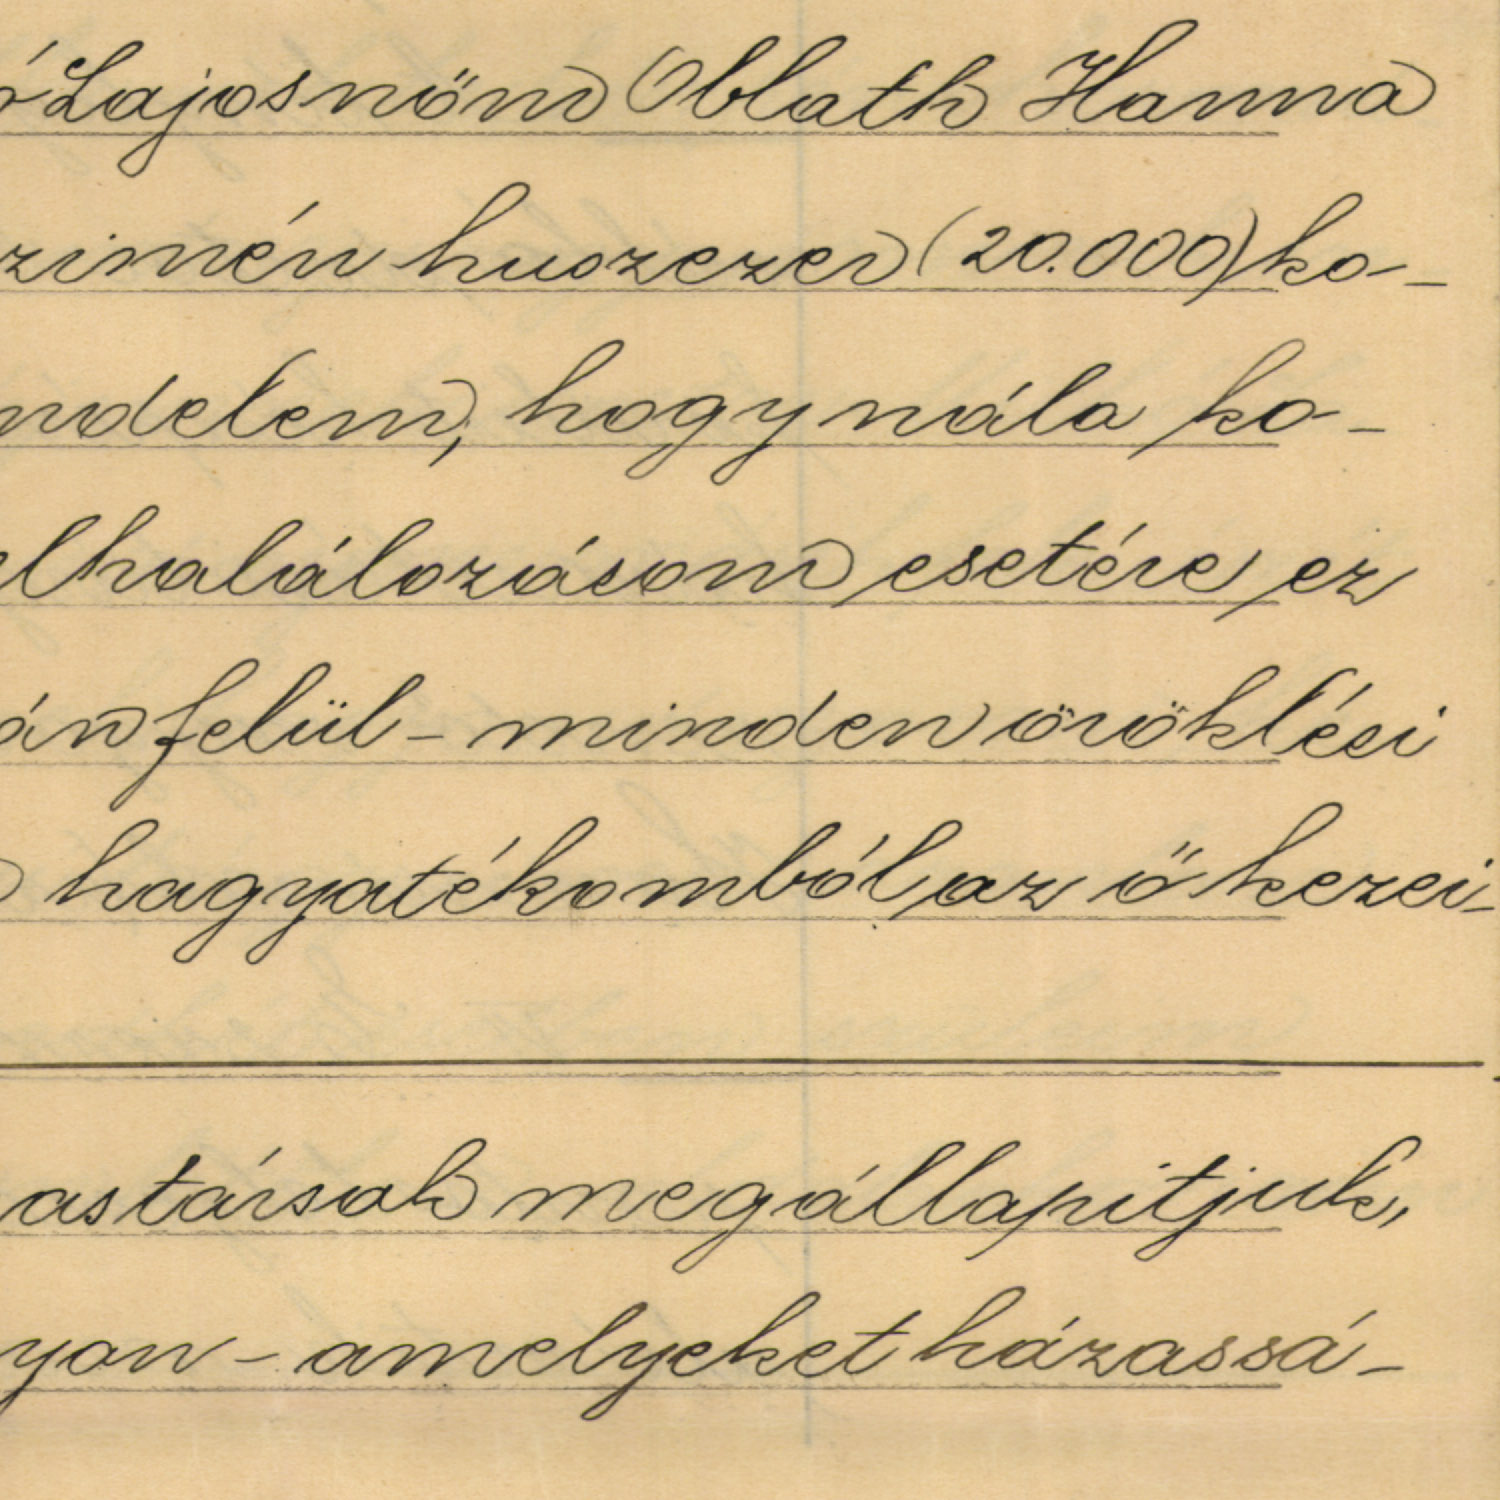 ó Lajosnőm Oblath Hanna
zimén huszezer (20.000) ko-
ndelem, hogy nála ko-
elhalálozásom esetére ez
án felül - minden öröklési
hagyatékomból az ő kezei-
astársak megállapitjuk,
yon - amelyeket házassá-